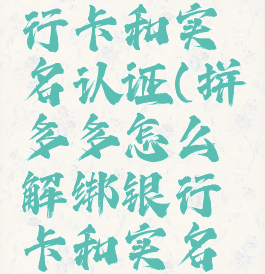 行卡和实
名认证(拼
多多怎么
解绑银行
卡和实名